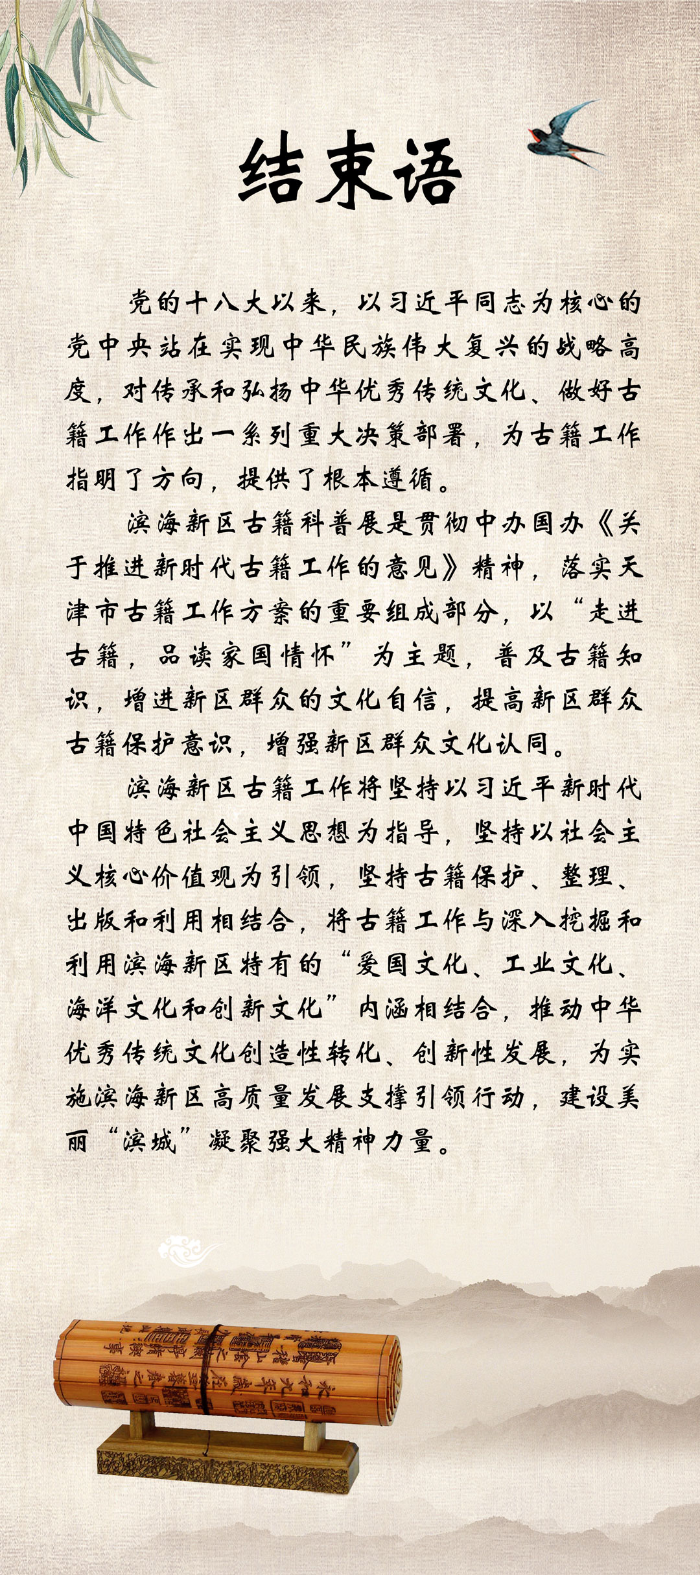 结束语
党的十八大以来，以习近平同志为核心的
党中央站在实现中华民族伟大复兴的战略高
度，对传承和弘扬中华优秀传统文化、做好古
籍工作作出一系列重大决策部署，为古籍工作
指明了方向，提供了根本遵循。
滨海新区古籍科普展是贯彻中办国办《关
于推进新时代古籍工作的意见》精神，落实天
津市古籍工作方案的重要组成部分，以“走进
古籍，品读家国情怀”为主题，普及古籍知
识，增进新区群众的文化自信，提高新区群众
古籍保护意识，增强新区群众文化认同。
滨海新区古籍工作将坚持以习近平新时代
中国特色社会主义思想为指导，坚持以社会主
义核心价值观为引领，坚持古籍保护、整理、
出版和利用相结合，将古籍工作与深入挖掘和
利用滨海新区特有的“爱国文化、工业文化、
海洋文化和创新文化”内涵相结合，推动中华
优秀传统文化创造性转化、创新性发展，为实
施滨海新区高质量发展支撑引领行动，建设美
丽“滨城”凝聚强大精神力量。
永和九年歲